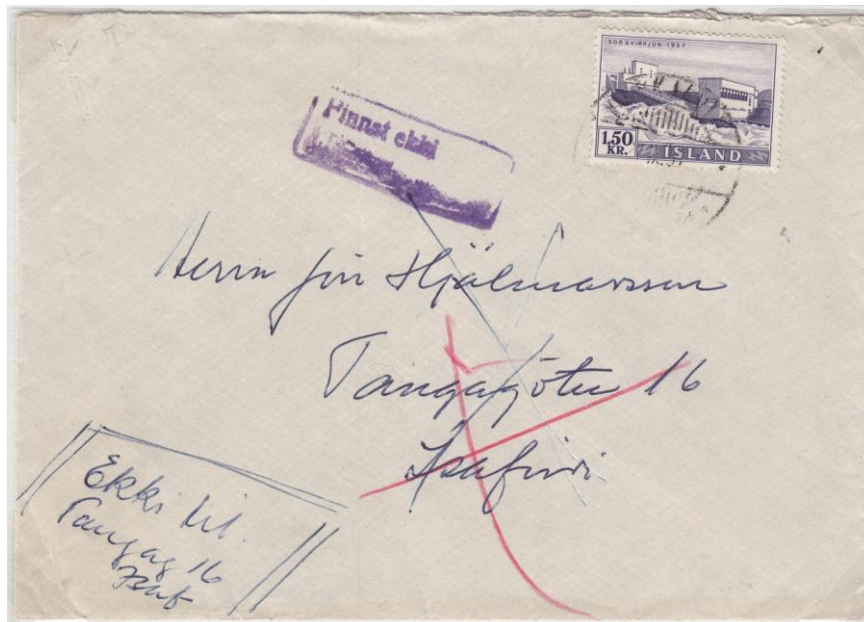 SOGSVIRKJUN 1937
1.50
KR.
ÍSLAND
Finnst ekki
Herrn Jón Hjálmarsson
Tangagötu 16
Ísafirði
Ekki til.
Tangag 16
Ísaf